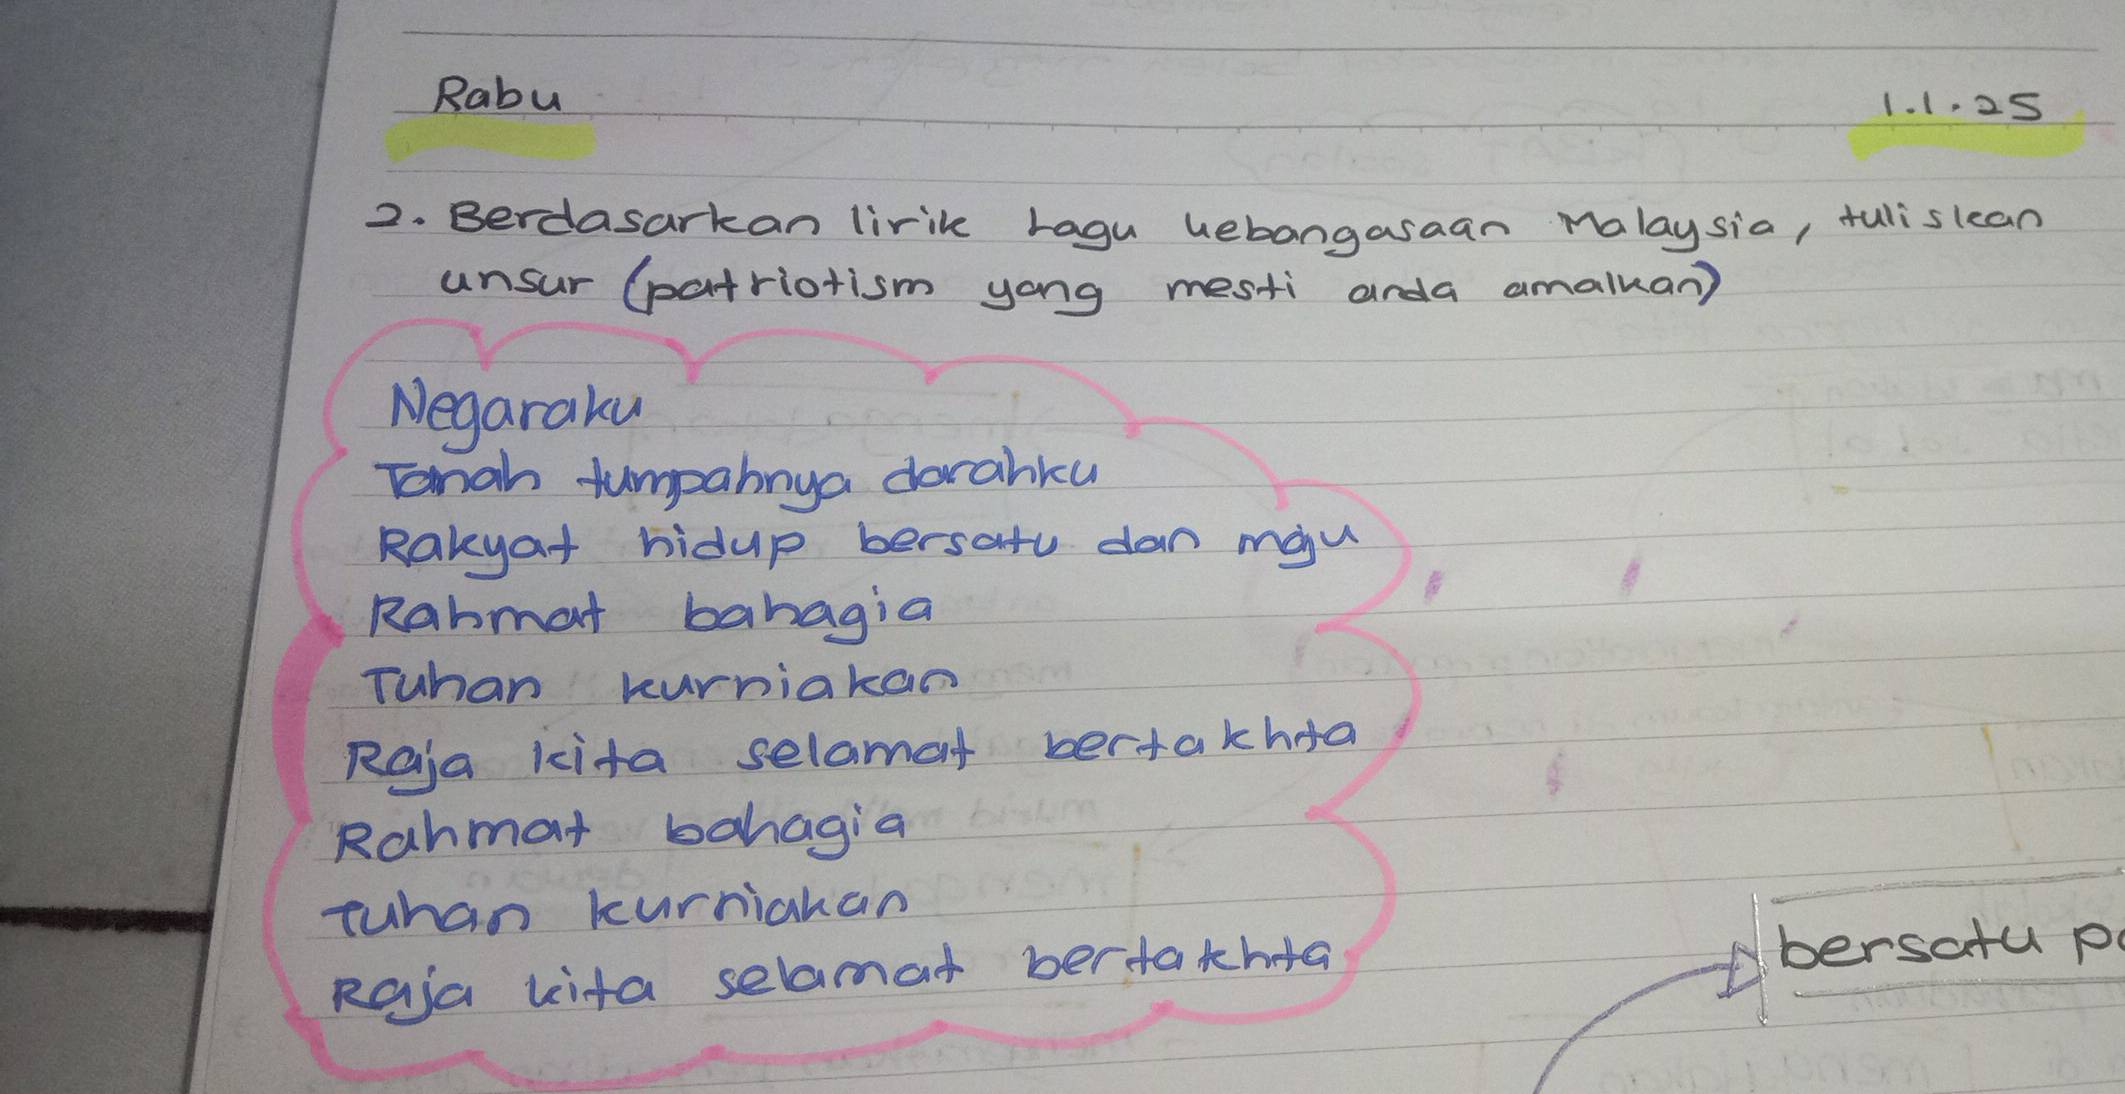 Rabu
1.1.25
2. Berdasarkan lirik Lagu kebangasaan Malaysia, tuliskan
unsur (patriotism yang mesti anda amalkan)
Negaraku
Tanah tumpahnya darahku
Rakyat hidup bersatu dan maju
Rahmat bahagia
Tuhan kurniakan
Raja kita selamat bertakhta
Rahmat bahagia
tuhan kurniakan
Raja kita selamat bertakhta
bersatu